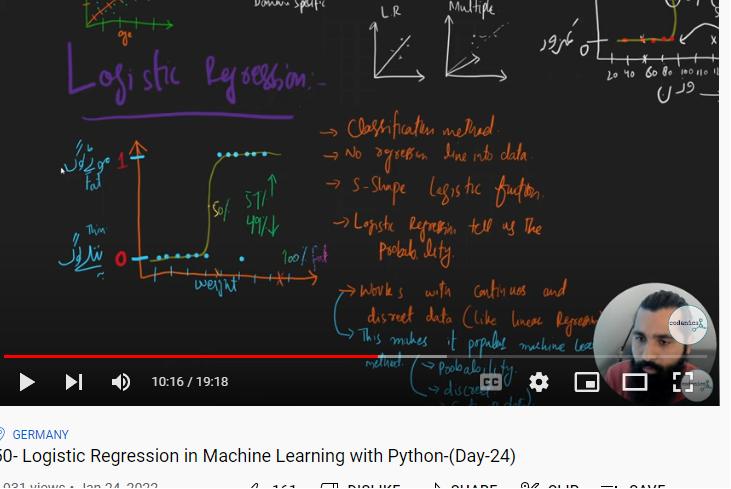 Domain Specific
age
L.R
Multiple
0
20 40 60 80 100 110
Logistic Regression:-
1
Fat
Thin
0
50%
51% ↑
49% ↓
100% fat
weight
→ Classification method.
→ No regression line into data.
→ S-Shape Logistic function.
→ Logistic Regression tell us The
Probability.
→ Works with Continuos and
discreet data (like linear Regression
→ This makes it popular machine
method.
→ Probability.
→ discreet
codanics
10:16 / 19:18
CC
GERMANY
50- Logistic Regression in Machine Learning with Python-(Day-24)
931 views • Jan 24, 2022
161
DISLIKE
SHARE
CLIP
SAVE